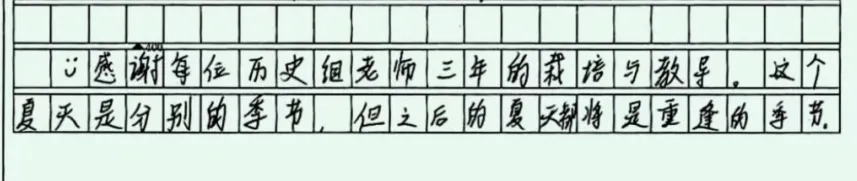 ▲400
ü感谢每位历史组老师三年的栽培与教导。这个
夏天是分别的季节，但之后的夏天都将是重逢的季节.